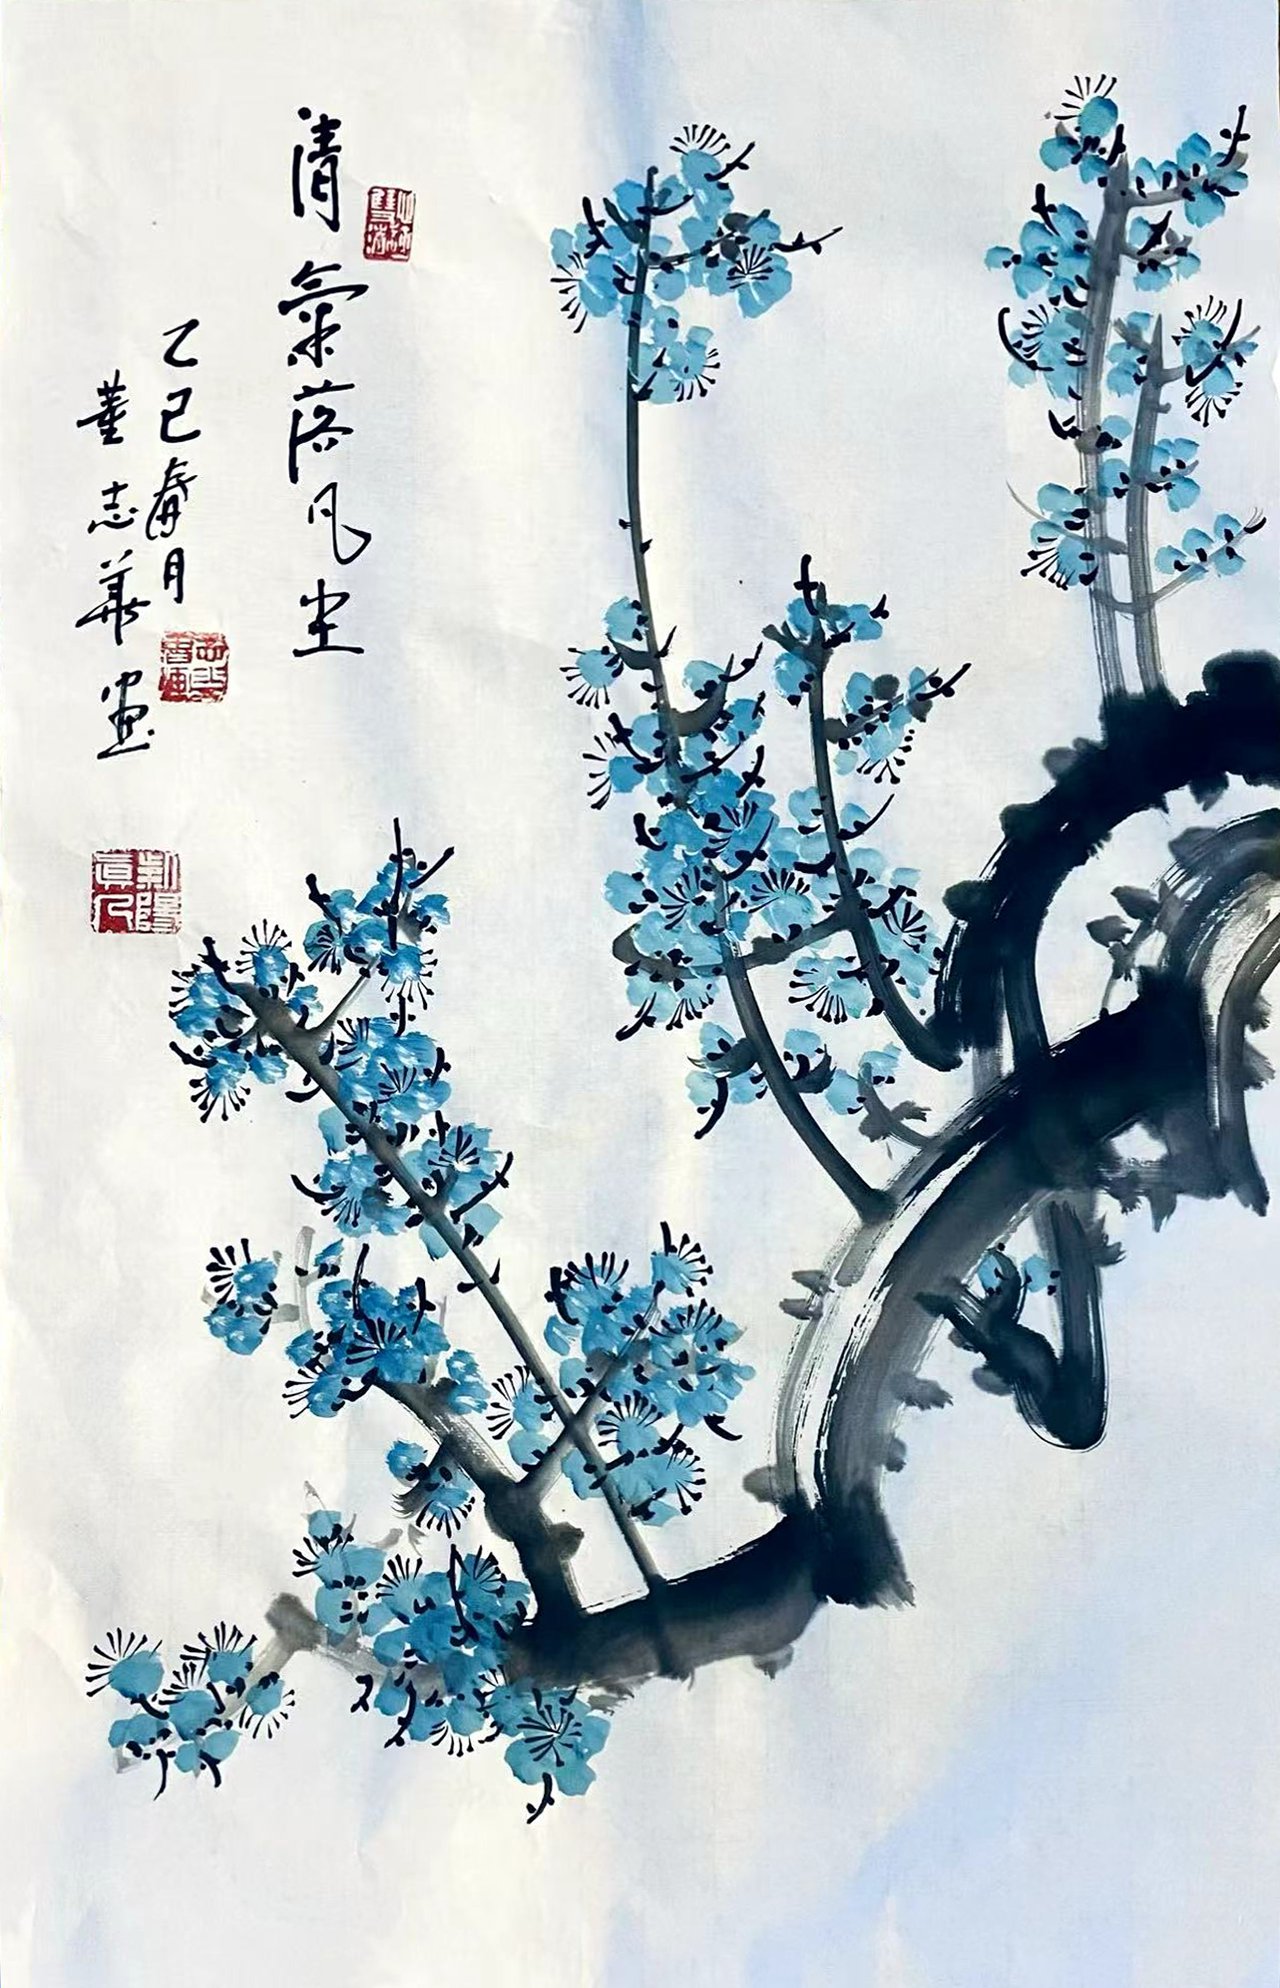 清氣落凡尘
乙巳春月
董志華画